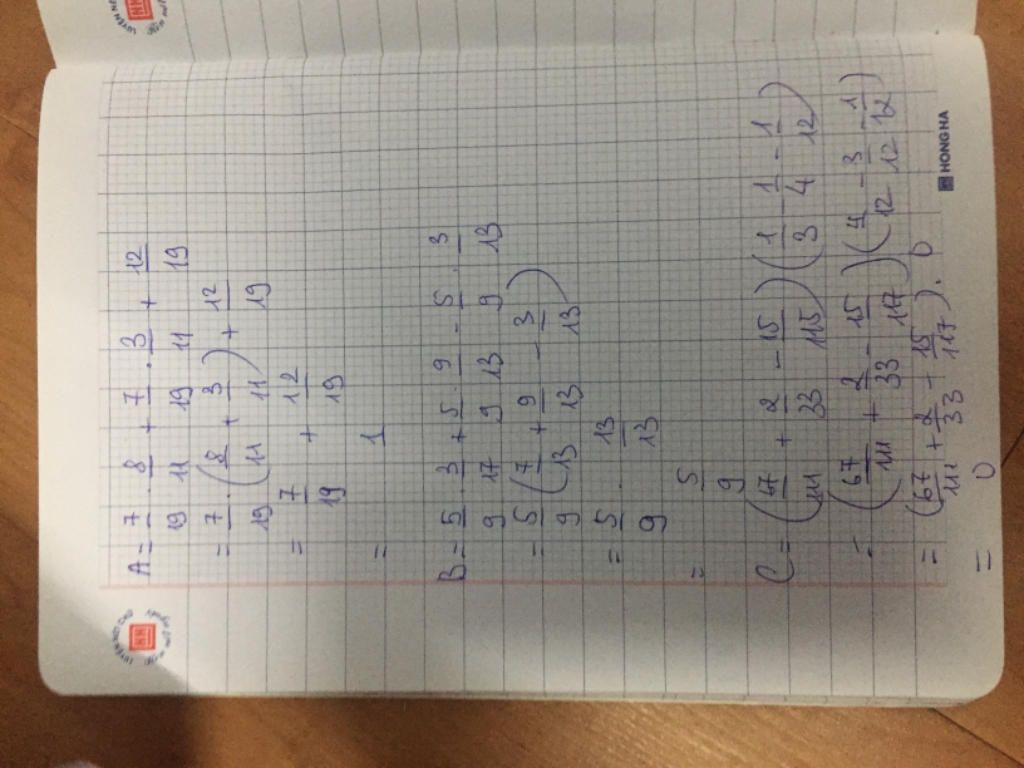 A = 7/19 . 8/11 + 7/19 . 3/11 + 12/19
= 7/19 . (8/11 + 3/11) + 12/19
= 7/19 + 12/19
= 1
B = 5/9 . 3/17 + 5/9 . 9/13 - 5/9 . 3/13
= 5/9 (7/13 + 9/13 - 3/13)
= 5/9 . 13/13
= 5/9
C = (67/111 + 2/33 - 15/115) (1/3 - 1/4 - 1/12)
= (67/111 + 2/33 - 15/117) (4/12 - 3/12 - 1/12)
= (67/111 + 2/33 - 15/117) . 0
= 0
HONG HA